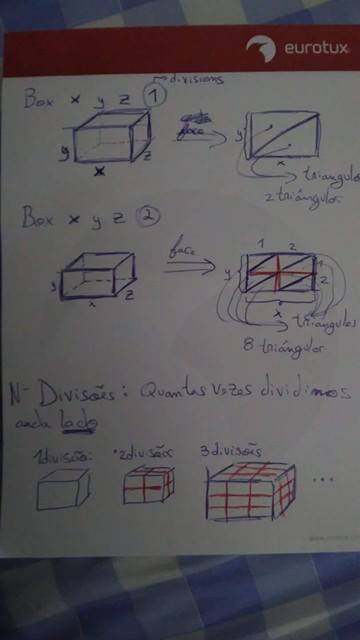 eurotux
divisions
Box x y z 1
face
y
x
z
y
x
triangulos
2 triángulos
Box x y z 2
face
1 2
y
x
z
y
1
2
x
triangulos
8 triángulos
Nº Divisões: Quantas vezes dividimos
cada lado
1 divisão: 2 divisões 3 divisões ...